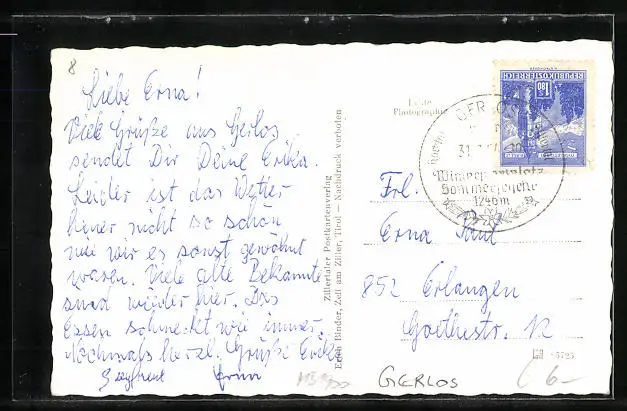 8
Liebe Erna!
Viele Grüße aus Gerlos
sendet Dir Deine Erika.
Leider ist das Wetter
heuer nicht so schön
wie wir es sonst gewohnt
waren. Viele alte Bekannte
sind wieder hier. Das
Essen schmeckt wie immer.
Nochmals herzl. Grüße Erika
Erna
Zillertaler Postkartenverlag
Erich Binder, Zell am Ziller, Tirol — Nachdruck verboten
Echte
Photographie
REPUBLIK ÖSTERREICH
S 1.80
GERLOS
31.
Wintersportplatz
Sommerfrische
1246m
Frl.
Erna Paul
852 Erlangen
Goethestr. 12
GERLOS
6-